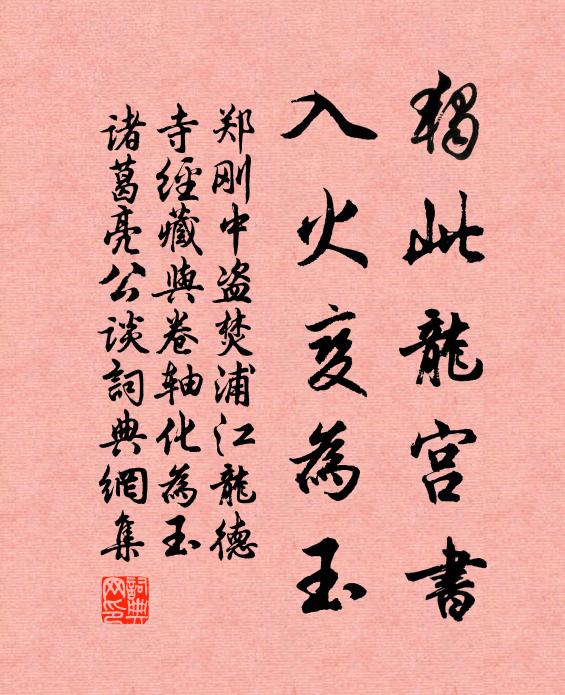 獨此龍宫書
入火变為玉
郑刚中盗焚浦江龍德
寺經藏與卷轴化為玉
诸葛亮公谈詞典網集
詞典
网印